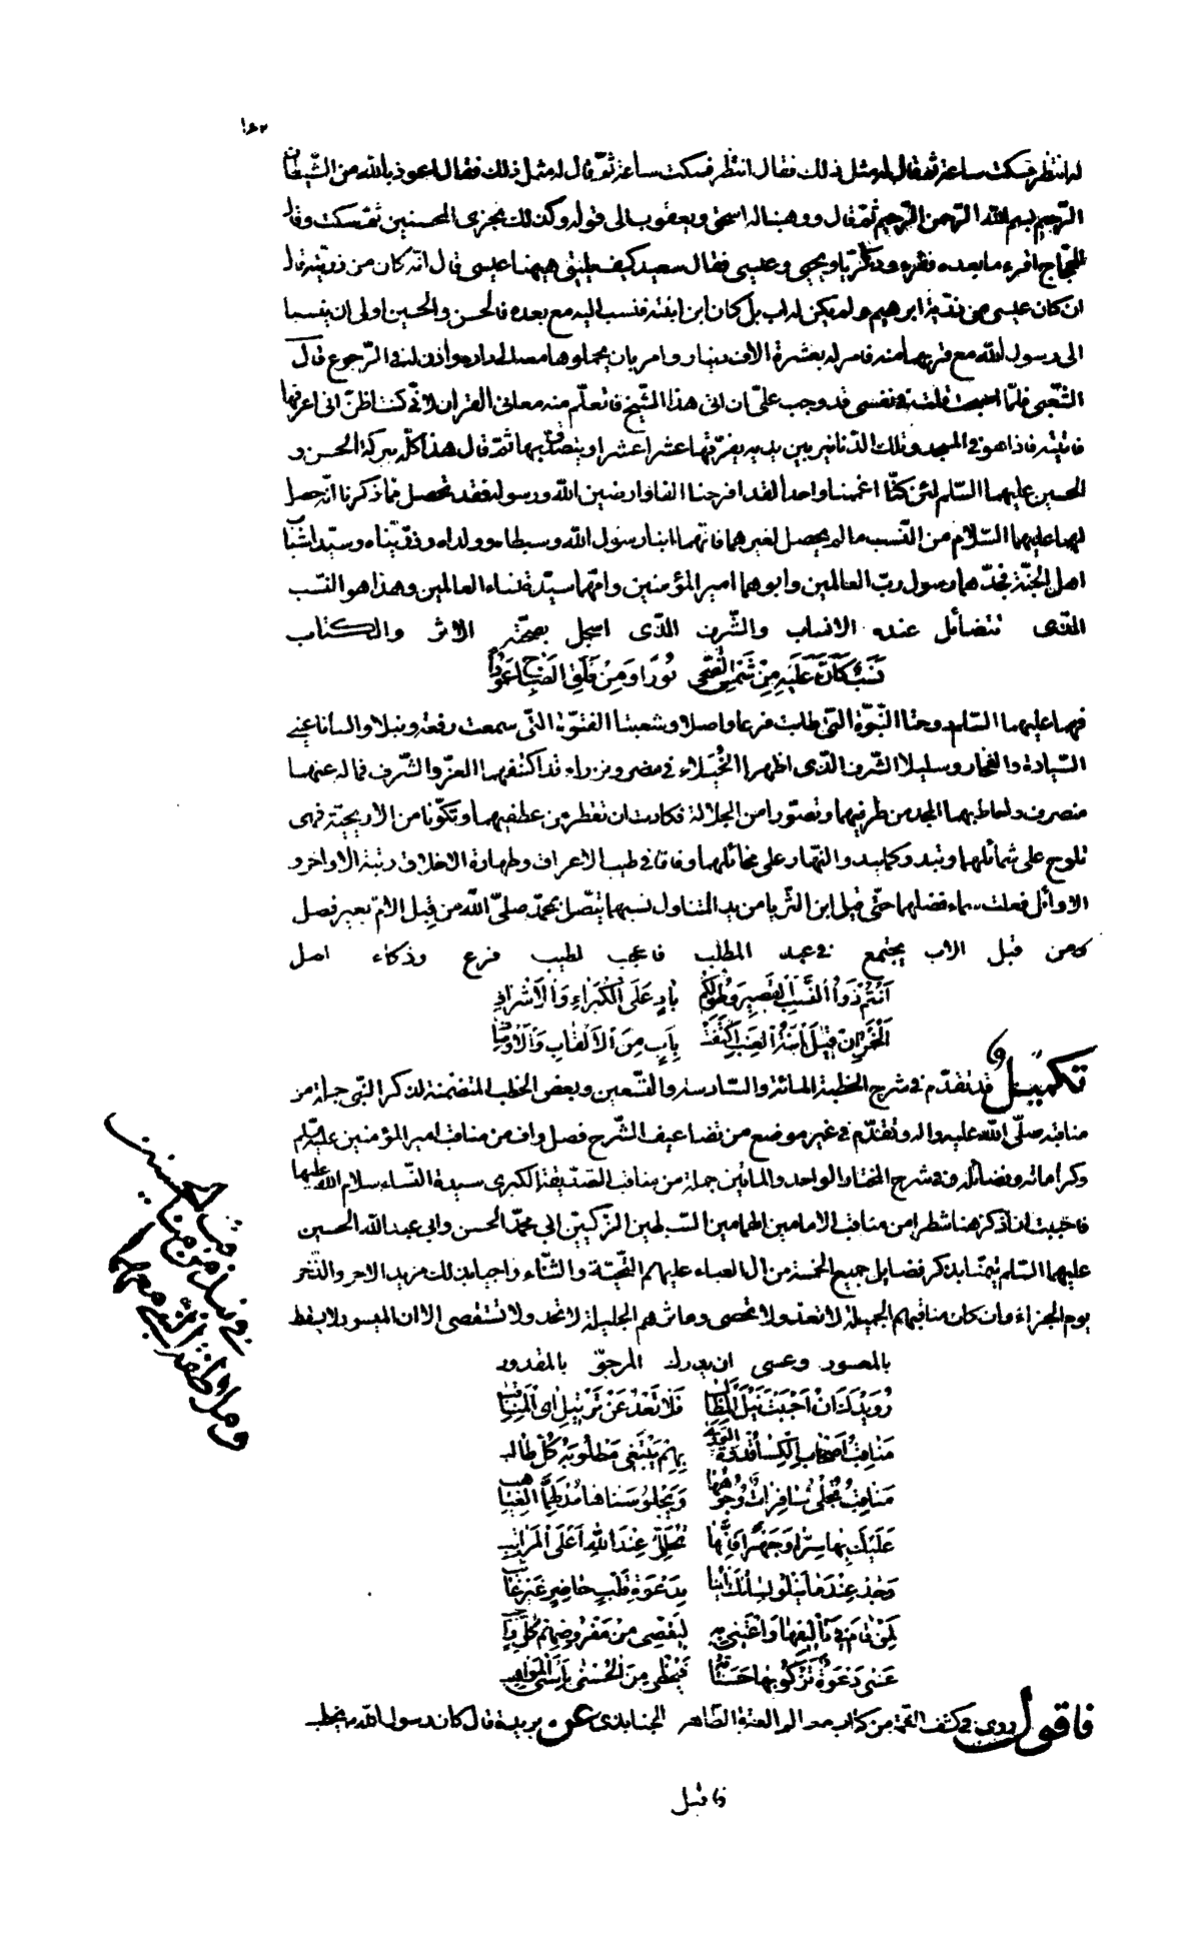 له انتظر فسكت ساعة ثم قال له مثل ذلك فقال انتظر فسكت ساعة ثمّ قال له مثل ذلك فقال اعوذ بالله من الشّيطان
الرّجيم بسم الله الرّحمن الرّحيم ثمّ قال ووهبنا له اسحق ويعقوب الى قوله وكذلك نجزى المحسنين ثمّ سكت وقال
للحجّاج اقرء ما بعده فقرء وزكريّا ويحيى وعيسى فقال سعيد كيف يليق هيهنا عيسى قال انّه كان من ذرّيّته قال
ان كان عيسى من ذرّيّة ابرهيم ولم يكن له اب بل كان ابن ابنته فنسب اليه مع بعده فالحسن والحسين اولى ان ينسبا
الى رسول الله مع قربهما منه فامر له بعشرة الاف دينار وامر بان يحملوها معه الى داره واذن له في الرّجوع قال
الشّعبى فلمّا اصبحت قلت في نفسى قد وجب علىّ ان اتى هذا الشّيخ فاتعلّم منه معانى القران لانّى كنت اظنّ انى اعرفها
فاتيته فاذا هو في المسجد وتلك الدّنانير بين يديه يفرّقها عشرا عشرا ويتصدّق بها ثمّ قال هذا كلّه ببركة الحسن و
الحسين عليهما السّلم لئن كنّا اغممنا واحدا لقد افرحنا الفا وارضين الله ورسوله فقد تحصل ممّا ذكرنا انّه حصل
لهما عليهما السّلام من النّسب ما لم يحصل لغيرهما فانّهما ابنا رسول الله وسبطاه وولداه وذرّيّتاه وسيّدا شباب
اهل الجنّة فجدّهما رسول ربّ العالمين وابوهما امير المؤمنين وامّهما سيّدة نساء العالمين وهذا هو النّسب
الّذى تتضائل عنده الانساب والشّرف الّذى اسجل بصحّته الاثر والكتاب
نَسَبٌ كَاَنَّ عَلَيْهِ مِنْ شَمْسِ الضُّحى نُورًا وَمِنْ فَلَقِ الصَّبَاحِ عَمُودًا
فهما عليهما السّلم دوحتا النّبوّة الّتى طابت فرعا واصلا وشعبتا الفتوّة الّتى سمعت رفعة ونبلا وانسانا عينى
السّيادة والفخار وسليلا الشّرف الّذى اظهر الخُيَلاء في مضر ونزار قد اكتنفهما العزّ والشّرف فما له عنهما
منصرف واحاط بهما المجد من طرفيهما وتصوّرا من الجلالة فكادت ان تقطر من عطفيهما وتكوّنا من الاريحيّة فهى
تلوح على شمائلهما وتبدو كما يبدو النّهار على مخائلهما وفاقا في طيب الاعراق وطهارة الاخلاق رتبة الاواخر و
الاوائل فعلت سماء فضلهما حتّى قيل اين الثّريا من يد المتناول نسبهما يتّصل بمحمّد صلّى الله من قِبل الامّ بغير فصل
ومن قبل الاب يجتمع في عبد المطلب فاعجب لطيب فرع وذكاء اصل
اَنْتُمْ ذَوُوا النَّسَبِ القَصِيرِ وَطُولُكُمْ بَادٍ عَلَى الْكُبَرَاءِ وَالْاَشْرَافِ
اَلْخَمْرُ اِنْ قِيلَ ابْنَةُ الْعِنَبِ اكْتَفَتْ بِاَبٍ مِنَ الْاَلْقَابِ وَالْاَوْصَافِ
تكميل قد تقدّم في شرح الخطبة المائة والسّادسة والتّسعين وبعض الخطب المتضمّنة لذكر النّبى جملة من
مناقبه صلّى الله عليه واله وتقدّم في غير موضع من تضاعيف الشّرح فصل واف من مناقب امير المؤمنين عليه السّلم
وكراماته وفضائله وفي شرح المختار الواحد والمائتين جملة من مناقب الصّدّيقة الكبرى سيدة النّساء سلام الله عليها
فاحببت ان اذكر هنا شطرا من مناقب الامامين الهمامين السّبطين الزّكيّين ابي محمّد الحسن وابي عبد الله الحسين
عليهما السّلم تيمّنا بذكر فضايل جميع الخمسة من ال العباء عليهم التّحيّة والثّناء واحتيازا بذلك مزيد الاجر والذّخر
يوم الجزاء وان كان مناقبهم الجميلة لا تعدّ ولا تحصى وماثرهم الجليلة لا تحد ولا تستقصى الّا ان الميسور لا يسقط
بالمعسور وعسى ان يدرك المرجوّ بالمقدور
رُوَيْدَكَ اِنْ اَحْبَبْتَ نَيْلَ الْمَطَالِبِ فَلَا تَعْدُ عَنْ تَرْتِيلِ اىِ الْمَنَاقِبِ
مَنَاقِبُ اَصْحَابِ الْكِسَا قُدْوَةُ الْوَرى بِهِمْ يَبْتَغِى مَطْلُوبَهُ كُلُّ طَالِبِ
مَنَاقِبُ تُجْلى سَافِرَاتٍ وُجُوهُهَا وَيَجْلُو سَنَاهَا مُدْلَهِمَّ الْغَيَاهِبِ
عَلَيْكَ بِهَا سِرًّا وَجَهْرًا فَاِنَّهَا تُحِلُّكَ عِنْدَ اللهِ اَعْلَى الْمَرَاتِبِ
وَخُذْ عِنْدَ مَا يَتْلُو لِسَانُكَ ايَهَا بِدَعْوَةِ قَلْبٍ حَاضِرٍ غَيْرِ غَائِبِ
لِمَنْ قَامَ فِي تَأْلِيفِهَا وَاعْتَنى بِهِ لِيَقْضِىَ مِنْ مَفْرُوضِهَا كُلَّ وَاجِبِ
عَسى دَعْوَةٌ تَزْكُو بِهَا حَسَنَاتُهُ فَيَحْظى مِنَ الْحُسْنى بِاَسْنَى الْمَوَاهِبِ
فاقول روى في كشف الغمّة من كتاب معالم العترة الطّاهرة الجنابذى عن بريدة قال كان رسول الله ص يخطب
في نبذ من مناقب الحسنين
وملاطفة النّبى معهما
فاقبل